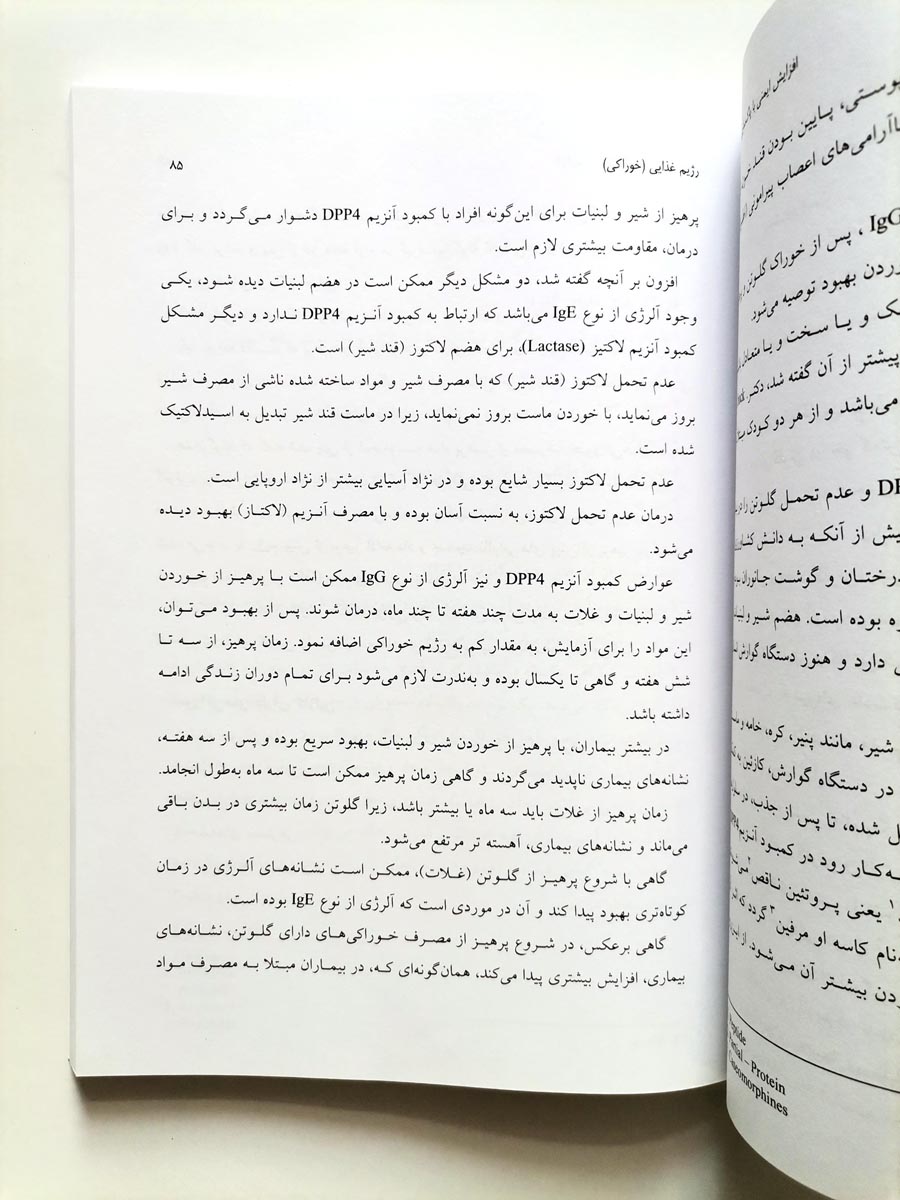 رژیم غذایی (خوراکی)
۸۵
پرهیز از شیر و لبنیات برای این‌گونه افراد با کمبود آنزیم DPP4 دشوار می‌گردد و برای
درمان، مقاومت بیشتری لازم است.
افزون بر آنچه گفته شد، دو مشکل دیگر ممکن است در هضم لبنیات دیده شود، یکی
وجود آلرژی از نوع IgE می‌باشد که ارتباط به کمبود آنزیم DPP4 ندارد و دیگر مشکل
کمبود آنزیم لاکتیز (Lactase)، برای هضم لاکتوز (قند شیر) است.
عدم تحمل لاکتوز (قند شیر) که با مصرف شیر و مواد ساخته شده ناشی از مصرف شیر
بروز می‌نماید، با خوردن ماست بروز نمی‌نماید، زیرا در ماست قند شیر تبدیل به اسیدلاکتیک
شده است.
عدم تحمل لاکتوز بسیار شایع بوده و در نژاد آسیایی بیشتر از نژاد اروپایی است.
درمان عدم تحمل لاکتوز، به نسبت آسان بوده و با مصرف آنزیم (لاکتاز) بهبود دیده
می‌شود.
عوارض کمبود آنزیم DPP4 و نیز آلرژی از نوع IgG ممکن است با پرهیز از خوردن
شیر و لبنیات و غلات به مدت چند هفته تا چند ماه، درمان شوند. پس از بهبود می‌توان،
این مواد را برای آزمایش، به مقدار کم به رژیم خوراکی اضافه نمود. زمان پرهیز، از سه تا
شش هفته و گاهی تا یکسال بوده و به‌ندرت لازم می‌شود برای تمام دوران زندگی ادامه
داشته باشد.
در بیشتر بیماران، با پرهیز از خوردن شیر و لبنیات، بهبود سریع بوده و پس از سه هفته،
نشانه‌های بیماری ناپدید می‌گردند و گاهی زمان پرهیز ممکن است تا سه ماه به‌طول انجامد.
زمان پرهیز از غلات باید سه ماه یا بیشتر باشد، زیرا گلوتن زمان بیشتری در بدن باقی
می‌ماند و نشانه‌های بیماری، آهسته تر مرتفع می‌شود.
گاهی با شروع پرهیز از گلوتن (غلات)، ممکن است نشانه‌های آلرژی در زمان
کوتاه‌تری بهبود پیدا کند و آن در موردی است که آلرژی از نوع IgE بوده است.
گاهی برعکس، در شروع پرهیز از مصرف خوراکی‌های دارای گلوتن، نشانه‌های
بیماری، افزایش بیشتری پیدا می‌کند، همان‌گونه‌ای که، در بیماران مبتلا به مصرف مواد
افزایش ایمنی با
پایین بودن قند
آرامی‌های اعصاب پیرامونی
، پس از خوراک گلوتن و
بهبود توصیه می‌شود.
ک و یا سخت و یا متعادل
پیشتر از آن گفته شد، دکتر
می‌باشد و از هر دو کودک
و عدم تحمل گلوتن را
یش از آنکه به دانش
درختان و گوشت جانوران
ره بوده است. هضم شیر و
دارد و هنوز دستگاه گوارش
شیر، مانند پنیر، کره، خامه و
در دستگاه گوارش، کازئین به
شده، تا پس از جذب، در
کار رود در کمبود آنزیم
۱ یعنی پروتئین ناقص۲
نام کاسه او مرفین۳ گردد که
بیشتر آن می‌شود. از
Peptide
Partial – Protein
Caseomorphines